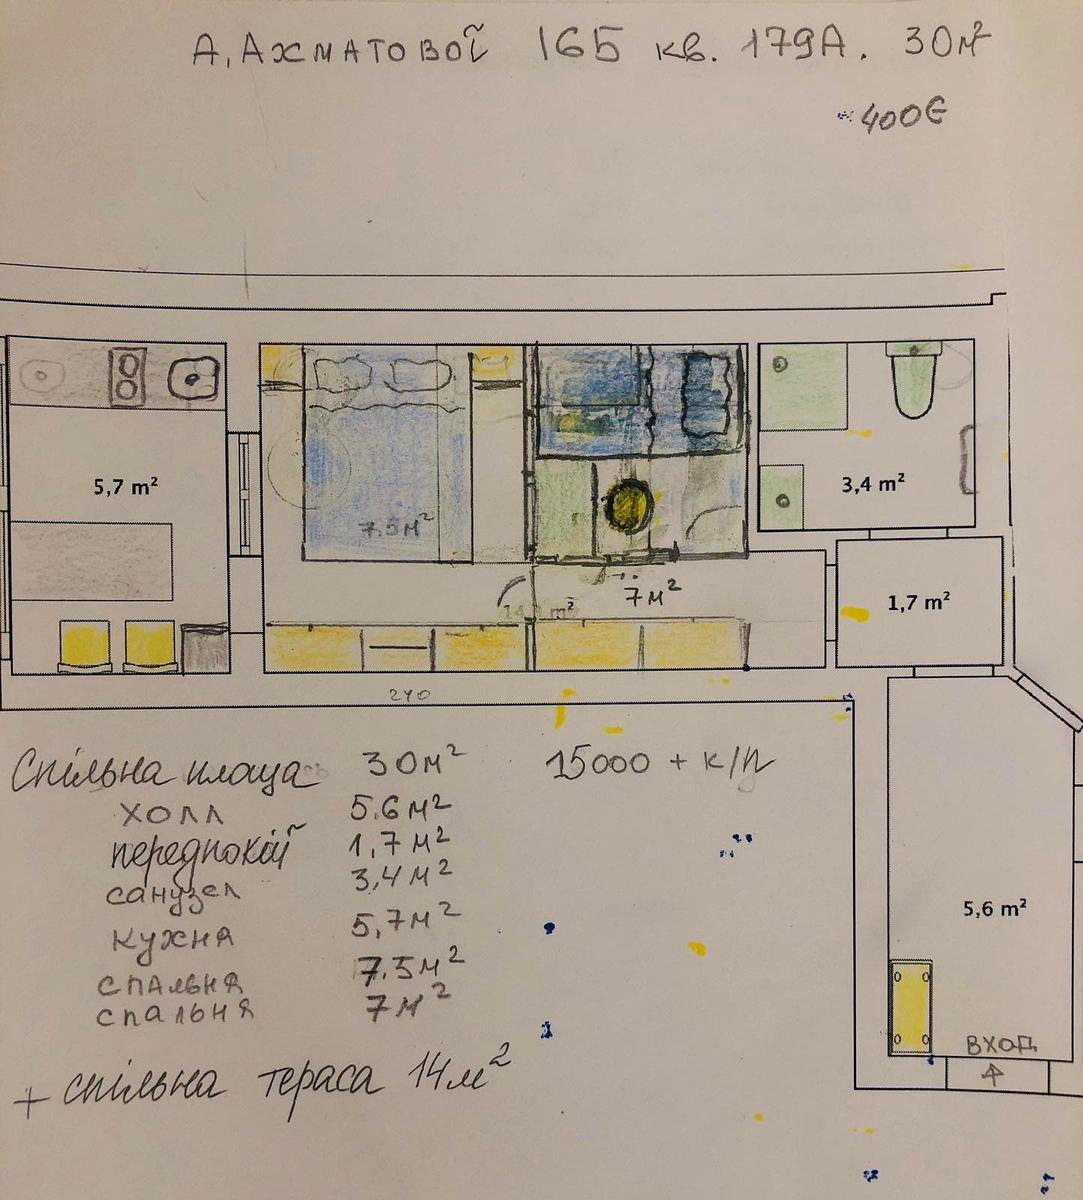 А. АХМАТОВОЇ 16Б кв. 179А. 30м²
400€
5,7 m²
7.5м²
3,4 m²
7м²
1,7 m²
270
Спільна площа 30м² 15000 + к/п
холл 5.6м²
передпокій 1,7м²
санузел 3,4м²
кухня 5,7м²
спальня 7.5м²
спальня 7м²
+ спільна тераса 14м²
5,6 m²
ВХОД